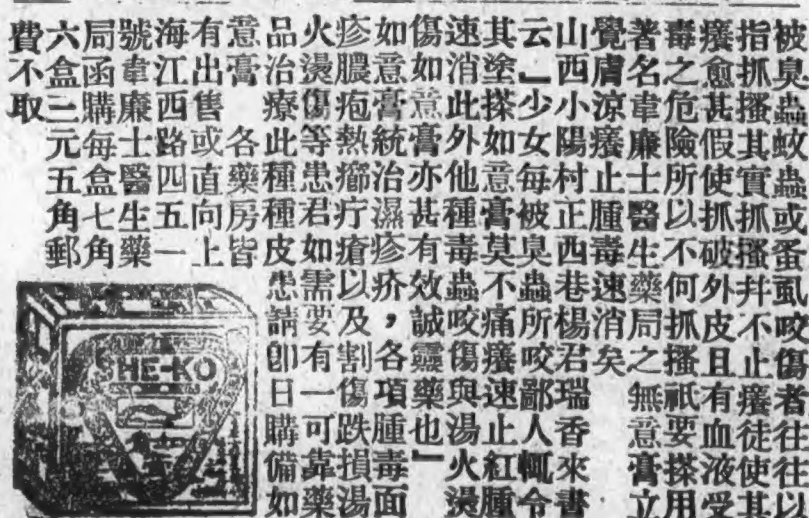 被臭蟲蚊蟲或蚤虱咬傷者往往以
指抓搔其實抓搔幷不止癢徒使其
癢愈甚假使抓破外皮且有血液受
毒之危險所以不何抓搔祇要搽用
著名韋廉士醫生藥局之無意膏立
覺膚涼癢止腫毒速消矣
山西小陽村正西巷楊君瑞香來書
云』少女每被臭蟲所咬鄙人輒令
其塗搽如意膏莫不痛癢速止紅腫
速消此外他種毒蟲咬傷與湯火燙
傷如意膏亦甚有效誠靈藥也』
如意膏統治濕疹疥，各項腫毒面
疹膿疱熱癤疔瘡以及割傷跌損湯
火燙傷等患君如需要有一可靠藥
品治療此種種皮患請卽日購備如
意膏　各藥房皆
有出售或直向上
海江西路四五一
號韋廉士醫生藥
局函購每盒七角
六盒三元五角郵
費不取
SHE-KO